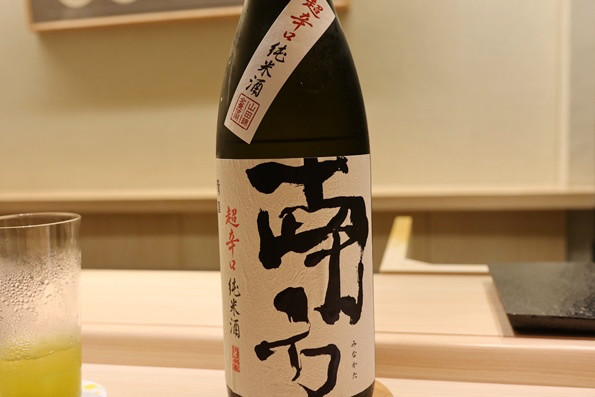 超辛口純米酒
山田錦
南方
みなかた
超辛口純米酒